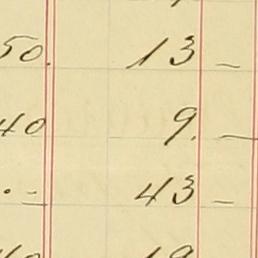 50. 13 –
40 9. –
. – 43 –